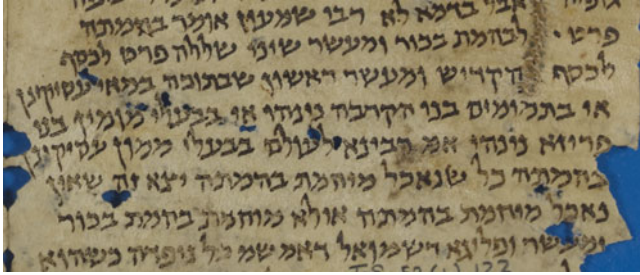 אבל בדמא לא רבי שמעון אומר בהמתה
פרט · לבהמת בכור ומעשר שיני שללה פרט לכסף
לכסף הקדיש ומעשר ראשון שבתוכה במאי עסיקינן
או בתמומים בני הקרבה נינהו או בבעלי מומין בני
פריווא נינהו אמ רבינא לעולם בבעלי ממון עסיקינן
בהמתה כל שנאכל מיחמת בהמתה יצא זה שאין
נאכל מיחמת בהמתה אילא מיחמת בהמת בכור
ומעשר ופליגא דשמואל דאמ שמ כל ניפדה כשהוא